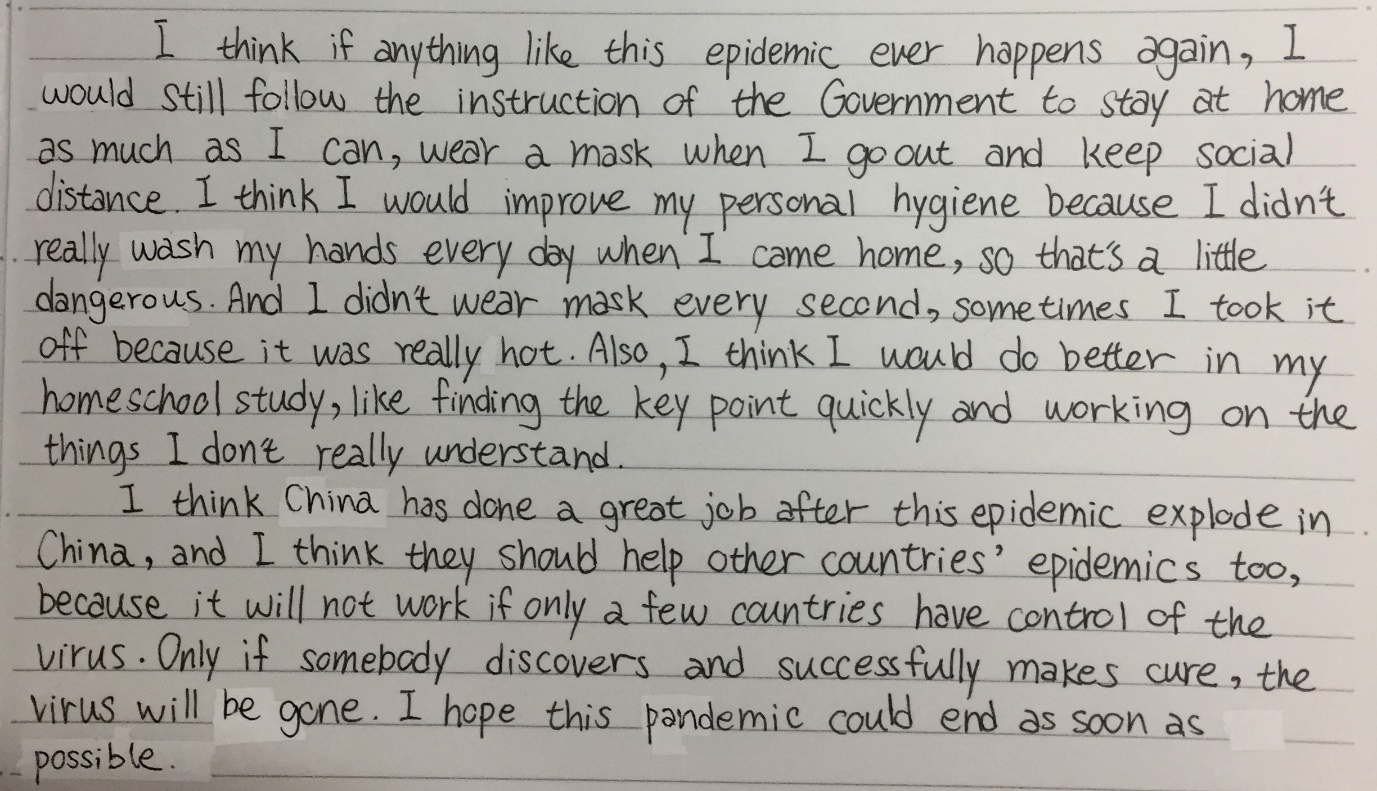 I think if anything like this epidemic ever happens again, I
would still follow the instruction of the Government to stay at home
as much as I can, wear a mask when I go out and keep social
distance. I think I would improve my personal hygiene because I didn't
really wash my hands every day when I came home, so that's a little
dangerous. And I didn't wear mask every second, sometimes I took it
off because it was really hot. Also, I think I would do better in my
homeschool study, like finding the key point quickly and working on the
things I don't really understand.
I think China has done a great job after this epidemic explode in
China, and I think they should help other countries' epidemics too,
because it will not work if only a few countries have control of the
virus. Only if somebody discovers and successfully makes cure, the
virus will be gone. I hope this pandemic could end as soon as
possible.